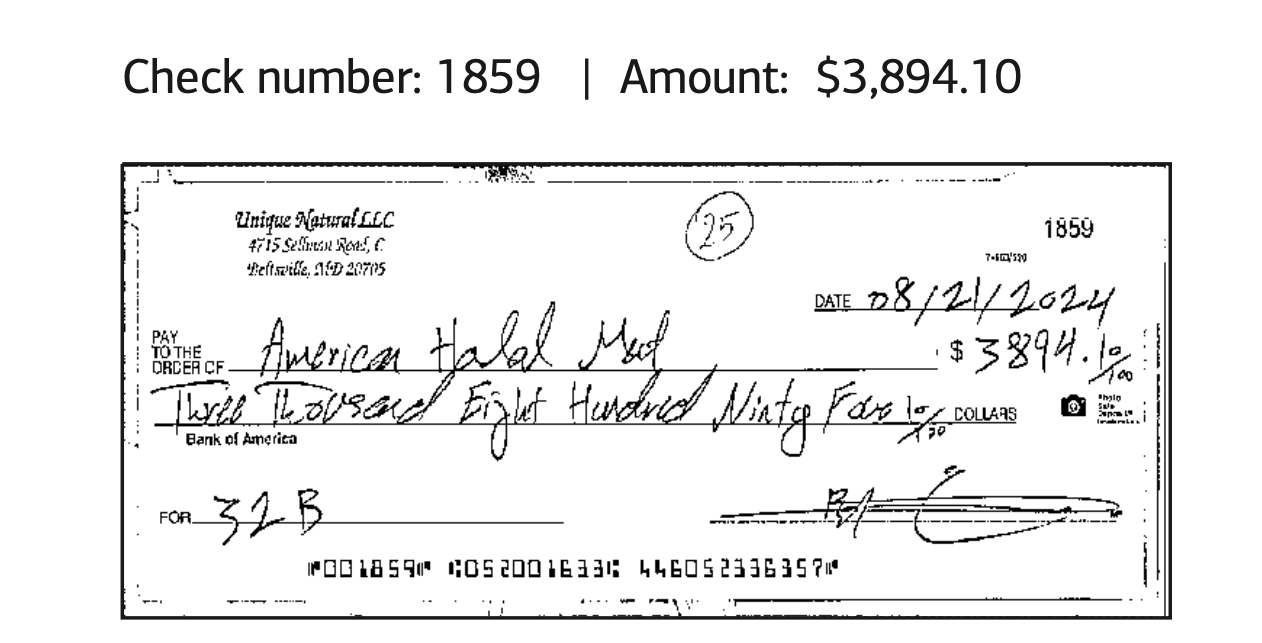 Check number: 1859 | Amount: $3,894.10
25
Unique Natural LLC
4715 Sellman Road, C
Beltsville, MD 20705
1859
DATE 08/21/2024
PAY
TO THE
ORDER OF American Halal Meat
$ 3894.10/100
Three Thousand Eight Hundred Ninty Four 10/100 DOLLARS
Photo
Safe
Deposit
Bank of America
FOR 32 B
⑈001859⑈ ⑆052001633⑆ 446052336357⑈